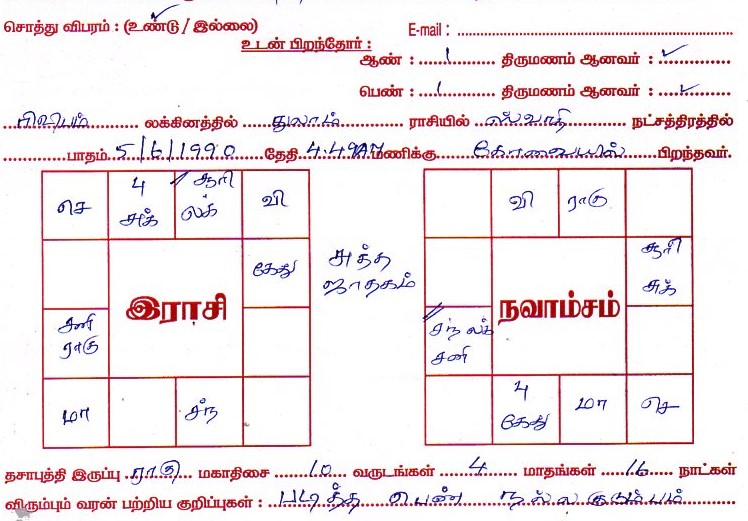 சொத்து விபரம் : (உண்டு / இல்லை) E-mail :
உடன் பிறந்தோர் :
ஆண் : 1 திருமணம் ஆனவர் : ✓
பெண் : 1 திருமணம் ஆனவர் : ✓
ரிஷபம் லக்கினத்தில் துலாம் ராசியில் ஸ்வாதி நட்சத்திரத்தில்
பாதம் 5/6/1990 தேதி 4.49 மணிக்கு கோவையில் பிறந்தவர்.
செ
4 சுக்
சூரி லக்
வி
கேது
சனி ராகு
இராசி
மா
சந்
சுத்த
ஜாதகம்
வி
ராகு
சூரி சுக்
சந் லக் சனி
நவாம்சம்
4 கேது
மா
செ
தசாபுத்தி இருப்பு ராகு மகாதிசை 10 வருடங்கள் 4 மாதங்கள் 16 நாட்கள்
விரும்பும் வரன் பற்றிய குறிப்புகள் : படித்த பெண் நல்ல குடும்பம்